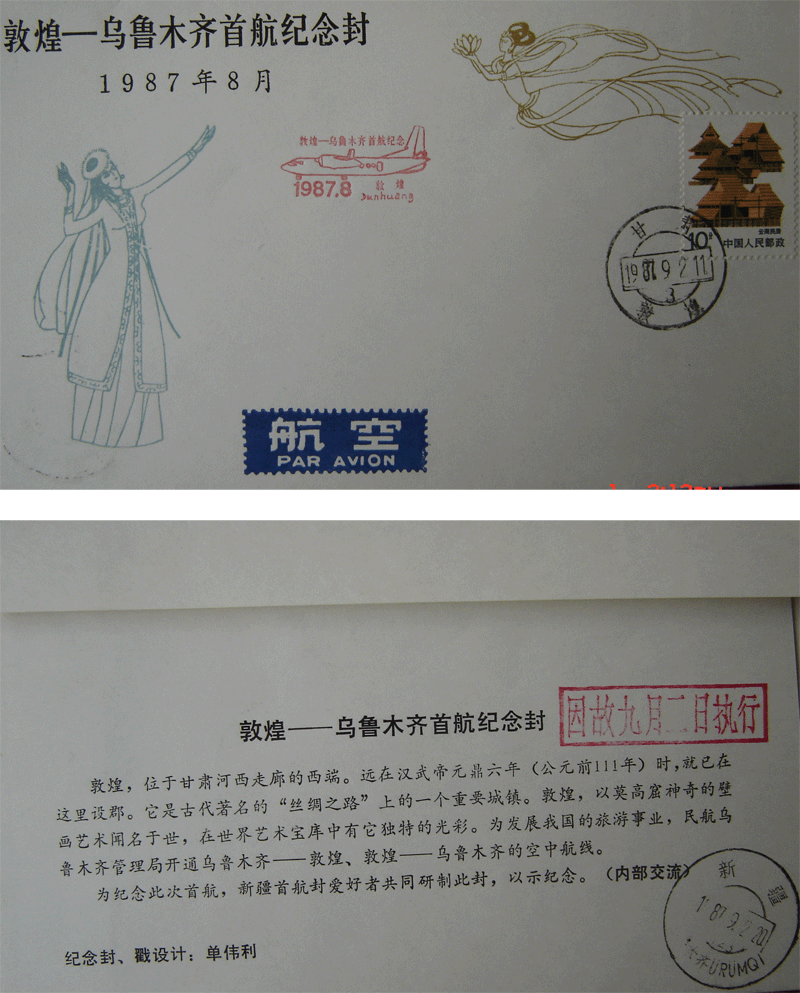 敦煌—乌鲁木齐首航纪念封
1987年8月
敦煌—乌鲁木齐首航纪念
1987.8 敦煌
Dunhuang
云南民居
10分
中国人民邮政
甘
1987.9.2.11
3
敦煌
航空
PAR AVION
敦煌——乌鲁木齐首航纪念封
因故九月二日执行
敦煌，位于甘肃河西走廊的西端。远在汉武帝元鼎六年（公元前111年）时，就已在
这里设郡。它是古代著名的“丝绸之路”上的一个重要城镇。敦煌，以莫高窟神奇的壁
画艺术闻名于世，在世界艺术宝库中有它独特的光彩。为发展我国的旅游事业，民航乌
鲁木齐管理局开通乌鲁木齐——敦煌、敦煌——乌鲁木齐的空中航线。
为纪念此次首航，新疆首航封爱好者共同研制此封，以示纪念。（内部交流）
新疆
87.9.2.20
URUMQI
纪念封、戳设计：单伟利